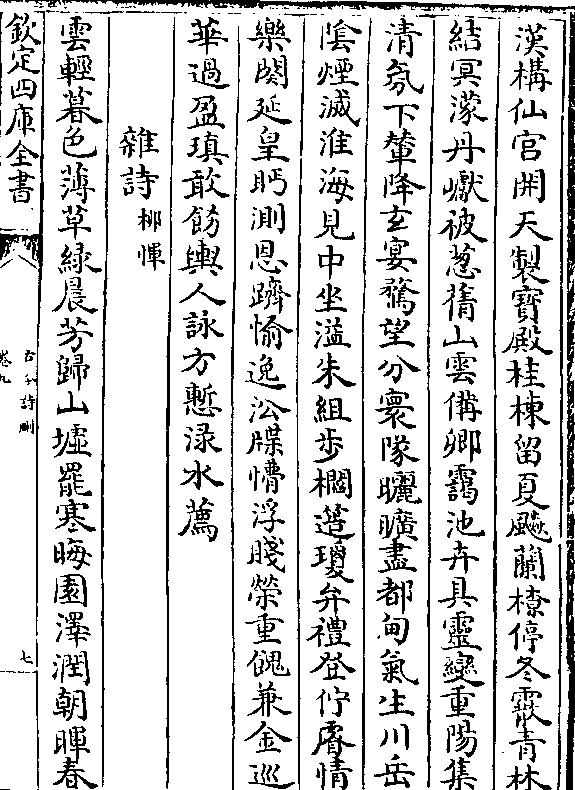 漢構仙宫開天製寶殿桂棟留夏飈蘭橑停冬霰青林
結冥濛丹巘被葱蒨山雲備卿靄池卉具靈變重陽集
清氛下輦降玄宴騖望分寰隧曬曠盡都甸氣生川岳
隂煙滅淮海見中坐溢朱組步櫩簉瓊弁禮登佇睿情
樂闋延皇眄測恩躋愉逸沿牒懵浮賤榮重餽兼金巡
華過盈瑱敢飭輿人詠方慙渌水薦
雜詩柳惲
雲輕暮色薄草緑晨芳歸山墟罷寒晦園澤潤朝暉春
欽定四庫全書
古今詩刪
卷九
七